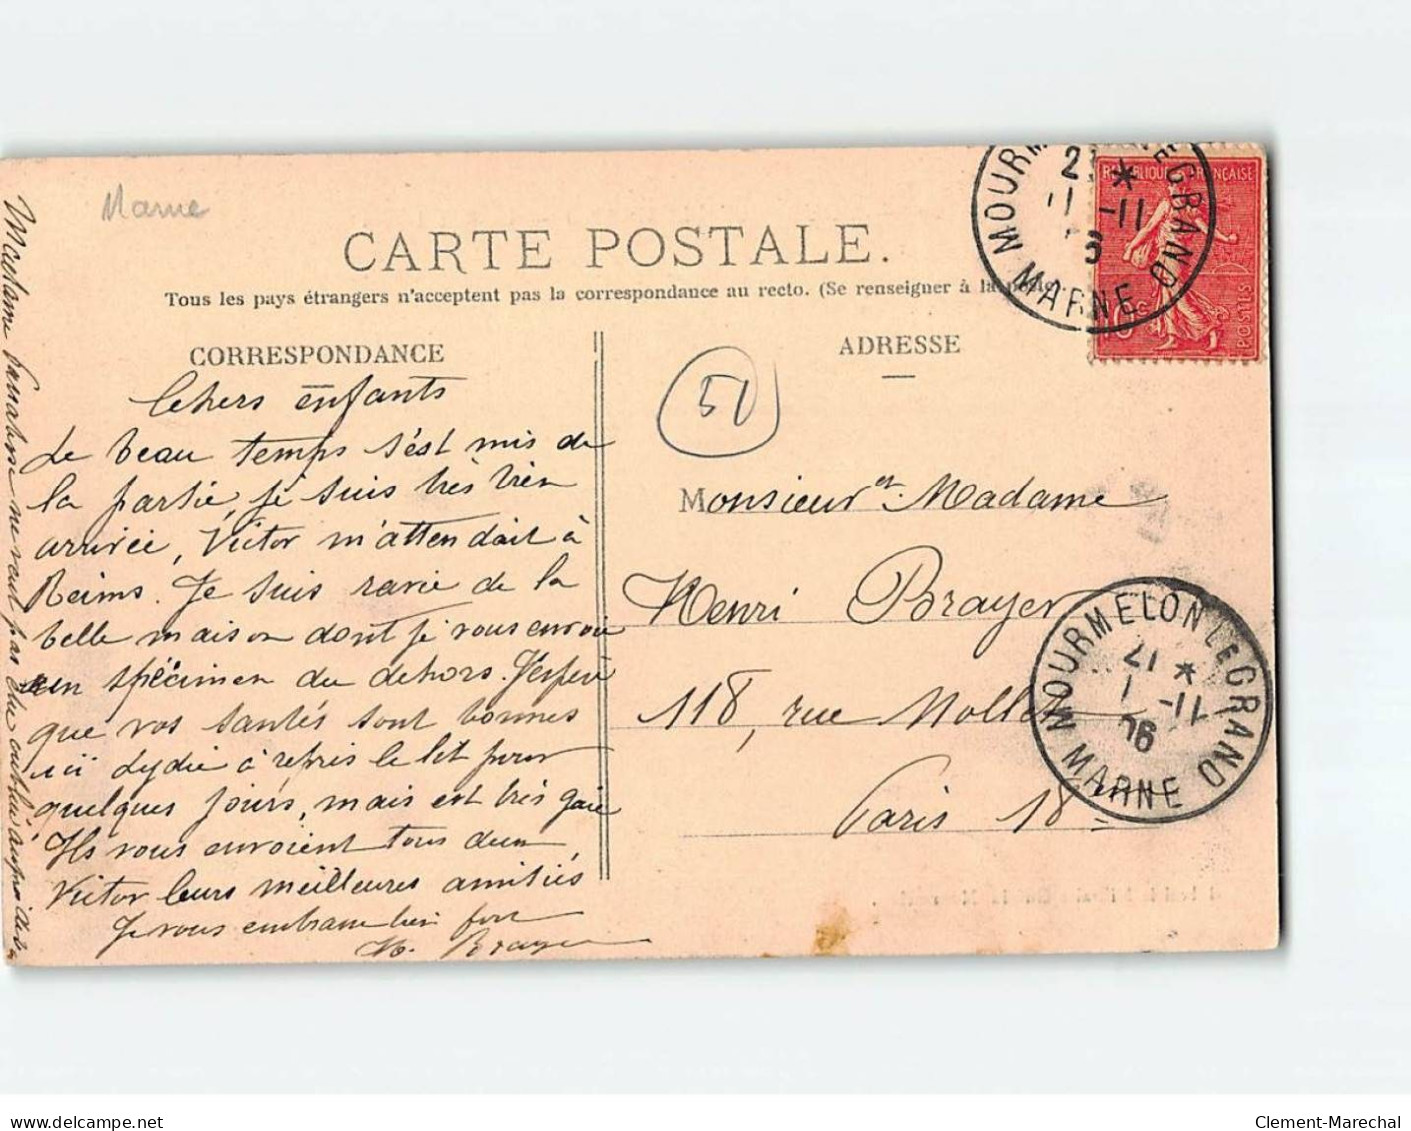 Marne
CARTE POSTALE.
Tous les pays étrangers n'acceptent pas la correspondance au recto. (Se renseigner à la poste).
CORRESPONDANCE
Chers enfants
Le beau temps s'est mis de
la partie, je suis très bien
arrivée, Victor m'attendait à
Reims. Je suis ravie de la
belle maison dont je vous envoie
un spécimen du dehors. J'espère
que vos santés sont bonnes
ici Lydie a repris le lit pour
quelques jours, mais est très gaie
Ils vous envoient tous deux
Victor leurs meilleures amitiés
Je vous embrasse bien fort
Brayer
ne veut pas être oublié auprès de
ADRESSE
51
Monsieur et Madame
Henri Brayer
118, rue
Paris 18
REPUBLIQUE FRANÇAISE
POSTES
MOURMELON LE GRAND
11-11
MARNE
MOURMELON LE GRAND
17
11-11
06
MARNE
delcampe.net
Clement-Marechal